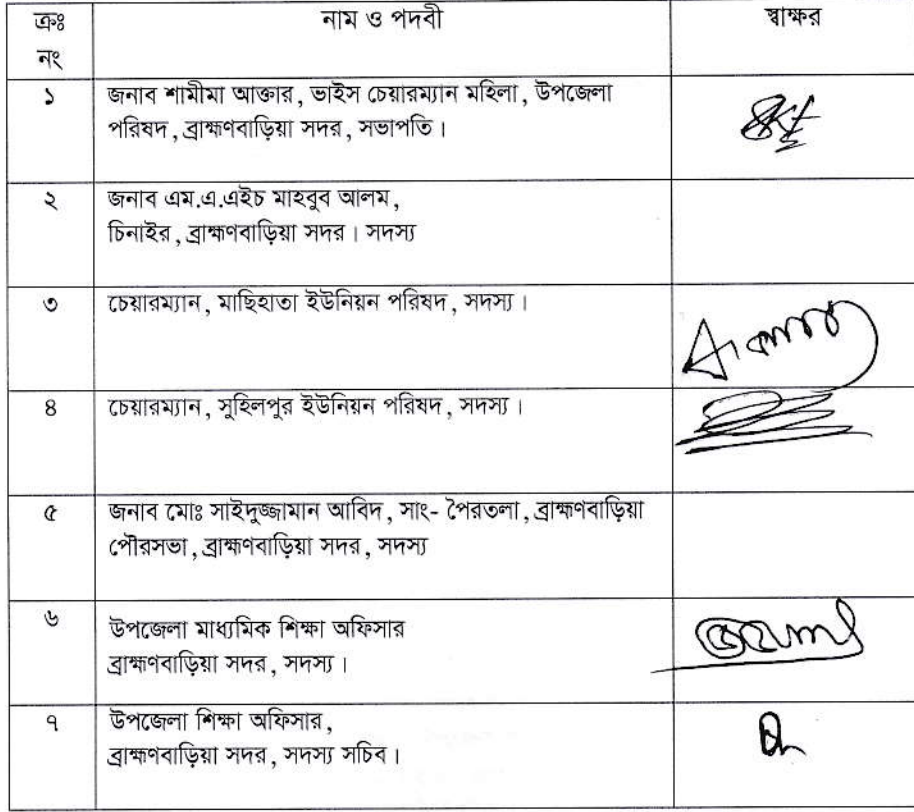 ক্রঃ নাম ও পদবী স্বাক্ষর
নং
১ জনাব শামীমা আক্তার, ভাইস চেয়ারম্যান মহিলা, উপজেলা
পরিষদ, ব্রাহ্মণবাড়িয়া সদর, সভাপতি।
২ জনাব এম.এ.এইচ মাহবুব আলম,
চিনাইর, ব্রাহ্মণবাড়িয়া সদর। সদস্য
৩ চেয়ারম্যান, মাছিহাতা ইউনিয়ন পরিষদ, সদস্য।
৪ চেয়ারম্যান, সুহিলপুর ইউনিয়ন পরিষদ, সদস্য।
৫ জনাব মোঃ সাইদুজ্জামান আবিদ, সাং- পৈরতলা, ব্রাহ্মণবাড়িয়া
পৌরসভা, ব্রাহ্মণবাড়িয়া সদর, সদস্য
৬ উপজেলা মাধ্যমিক শিক্ষা অফিসার
ব্রাহ্মণবাড়িয়া সদর, সদস্য।
৭ উপজেলা শিক্ষা অফিসার,
ব্রাহ্মণবাড়িয়া সদর, সদস্য সচিব।